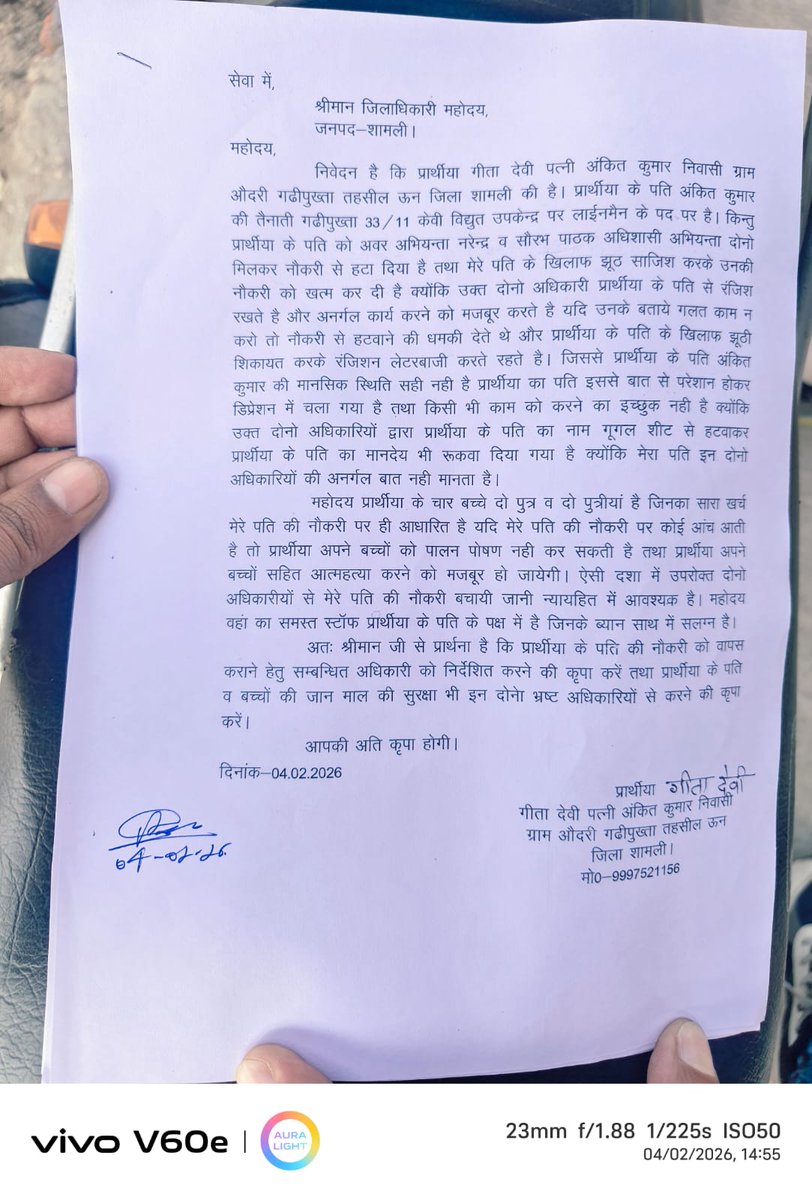 सेवा में,
श्रीमान जिलाधिकारी महोदय,
जनपद–शामली।
महोदय,
निवेदन है कि प्रार्थीया गीता देवी पत्नी अंकित कुमार निवासी ग्राम
औदरी गढीपुख्ता तहसील ऊन जिला शामली की है। प्रार्थीया के पति अंकित कुमार
की तैनाती गढीपुख्ता 33/11 केवी विद्युत उपकेन्द्र पर लाईनमैन के पद पर है। किन्तु
प्रार्थीया के पति को अवर अभियन्ता नरेन्द्र व सौरभ पाठक अधिशासी अभियन्ता दोनो
मिलकर नौकरी से हटा दिया है तथा मेरे पति के खिलाफ झूठ साजिश करके उनकी
नौकरी को खत्म कर दी है क्योंकि उक्त दोनो अधिकारी प्रार्थीया के पति से रंजिश
रखते है और अनर्गल कार्य करने को मजबूर करते है यदि उनके बताये गलत काम न
करो तो नौकरी से हटवाने की धमकी देते थे और प्रार्थीया के पति के खिलाफ झूठी
शिकायत करके रंजिशन लेटरबाजी करते रहते है। जिससे प्रार्थीया के पति अंकित
कुमार की मानसिक स्थिति सही नही है प्रार्थीया का पति इससे बात से परेशान होकर
डिप्रेशन में चला गया है तथा किसी भी काम को करने का इच्छुक नही है क्योंकि
उक्त दोनो अधिकारियों द्वारा प्रार्थीया के पति का नाम गूगल शीट से हटवाकर
प्रार्थीया के पति का मानदेय भी रूकवा दिया गया है क्योंकि मेरा पति इन दोनो
अधिकारियों की अनर्गल बात नही मानता है।
महोदय प्रार्थीया के चार बच्चे दो पुत्र व दो पुत्रीयां है जिनका सारा खर्च
मेरे पति की नौकरी पर ही आधारित है यदि मेरे पति की नौकरी पर कोई आंच आती
है तो प्रार्थीया अपने बच्चों को पालन पोषण नही कर सकती है तथा प्रार्थीया अपने
बच्चों सहित आत्महत्या करने को मजबूर हो जायेगी। ऐसी दशा में उपरोक्त दोनो
अधिकारीयों से मेरे पति की नौकरी बचायी जानी न्यायहित में आवश्यक है। महोदय
वहां का समस्त स्टॉफ प्रार्थीया के पति के पक्ष में है जिनके ब्यान साथ में सलग्न है।
अतः श्रीमान जी से प्रार्थना है कि प्रार्थीया के पति की नौकरी को वापस
कराने हेतु सम्बन्धित अधिकारी को निर्देशित करने की कृपा करें तथा प्रार्थीया के पति
व बच्चों की जान माल की सुरक्षा भी इन दोनो भ्रष्ट अधिकारियों से करने की कृपा
करें।
आपकी अति कृपा होगी।
दिनांक–04.02.2026
प्रार्थीया गीता देवी
गीता देवी पत्नी अंकित कुमार निवासी
ग्राम औदरी गढीपुख्ता तहसील ऊन
जिला शामली।
मो0–9997521156
04-02-26
vivo V60e | AURA LIGHT
23mm f/1.88 1/225s ISO50
04/02/2026, 14:55